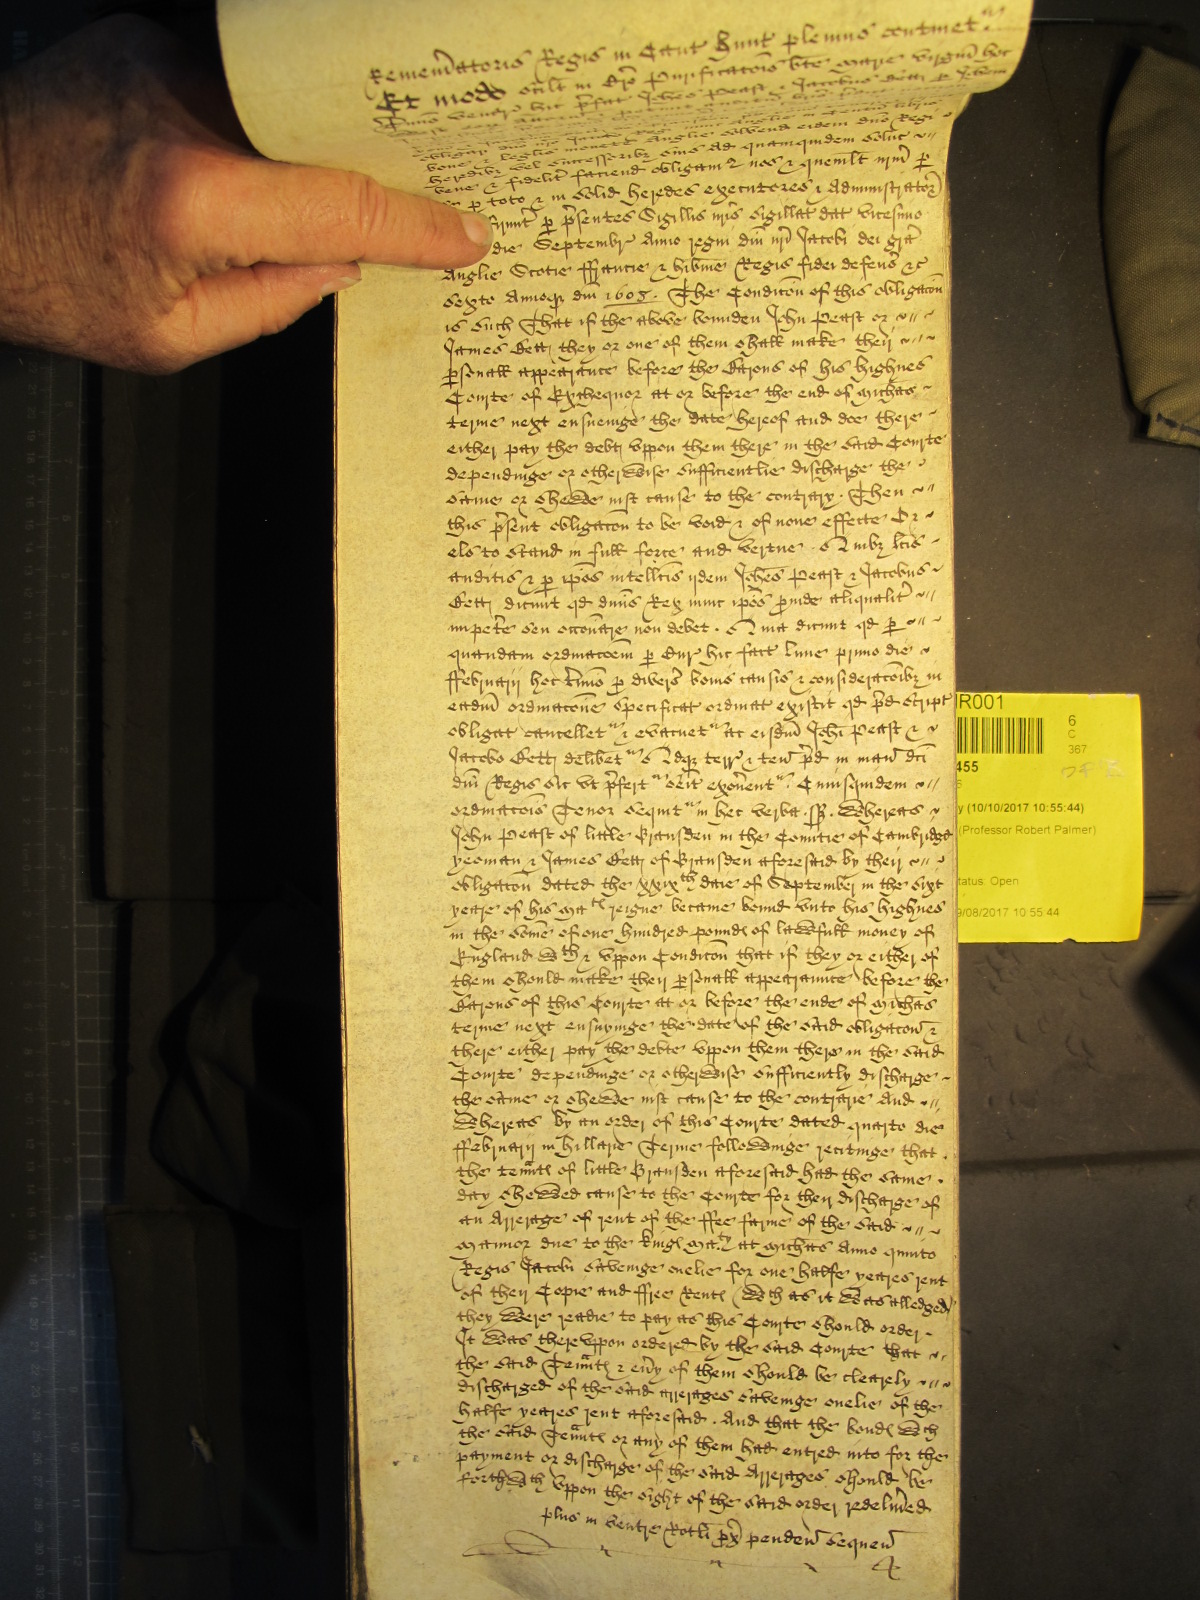 Rememoratoris Regis in Cant Hunt plenius continet
Et modo scilt in Cro Purificacois bte marie virginis hoc
Anno venerunt hic prefat Johes Peast & Jacobus Bett p
obligar dno nro
bone & legalis monete Anglie solvend eidem dno Regi
heredibz vel successoribz suis ad quamquidem soluc
bene & fidelit faciend obligam9 nos & quemlt nrm p
se p toto & in solid heredes executores & Administrator
firmit p presentes Sigillis nris sigillat dat vicesimo
die Septembr Anno regni dni nri Jacobi dei gra
Anglie Scotie ffrancie & hibnie Regis fidei defens &c
sexto Annoqz dni 1608. The Condicon of this obligacon
is such That if the above bounden John Peast or
James Bett they or one of them shall make their
psonall appearance before the Barons of his highnes
Courte of Exchequor at or before the end of Michas
terme next ensueinge the date hereof and doe there
either pay the debt vppon them there in the said Courte
dependinge or otherwise sufficientlie discharge the
same or shewe iust cause to the contrary. Then
this psent obligacon to be void & of none effecte Or
els to stand in full force and vertue. Quibz lctis
auditis & p ipos intellcis ijdem Johes Peast & Jacobus
Bett dicunt qd dnus Rex nunc ipos pinde aliqualit
impetere seu occonare non debet. Quia dicunt qd p
quandam ordinacoem p Cur hic fact lune primo die
ffebruarij hoc tmino p divers bonis causis & consideracoibz in
eadm ordinacone specificat ordinat existit qd pd script
obligat cancellet & evacuet ac eisdm Johi Peast &
Jacobo Bett delibet Adqz terr & ten pd in manu dci
dni Regis sic vt pfert seit exonent. Cuiusquidem
ordinacois Tenor sequit in hec verba. ss. Whereas
John Peast of little Gransden in the Countie of Cambridge
yeoman & James Bett of Gransden aforesaid by their
obligacon dated the xxixth daie of September in the sixt
yeare of his Matis reigne became bound vnto his highnes
in the some of one hundred pound of lawfull money of
England wth & vppon Condicon that if they or either of
them should make their psonall appearaunce before the
Barons of this Courte at or before the ende of Michas
terme next ensuynge the date of the said obligacon &
there either pay the debte vppon them there in the said
Courte dependinge or otherwise sufficiently discharge
the same or shewe iust cause to the contrarie And
Whereas by an order of this Courte dated quarto die
ffebruarij in hillarie Terme followinge recitinge that
the tennt of little Gransden aforesaid had the same
day shewed cause to the Courte for their discharge of
an Arrerage of rent of the ffee farme of the said
mannor due to the king Maty at Michas Anno quinto
Regis Jacobi savinge onelie for one halfe yeares rent
of their Copie and ffree Rent (wch as it was alledged)
they were readie to pay as this Courte should order
It was therevppon ordered by the said Courte that
the said Tennt & eny of them should be clearely
discharged of the said arrerages savinge onelie of the
halfe yeares rent aforesaid. And that the bond wch
the said Tennt or any of them had entred into for the
payment or discharge of the said Arrerages should be
forthwth vppon the sight of the said order redelived
plus in ventre Rotli px penden sequen
IR001
6
C
367
455
y (10/10/2017 10:55:44)
(Professor Robert Palmer)
tatus: Open
9/08/2017 10 55 44